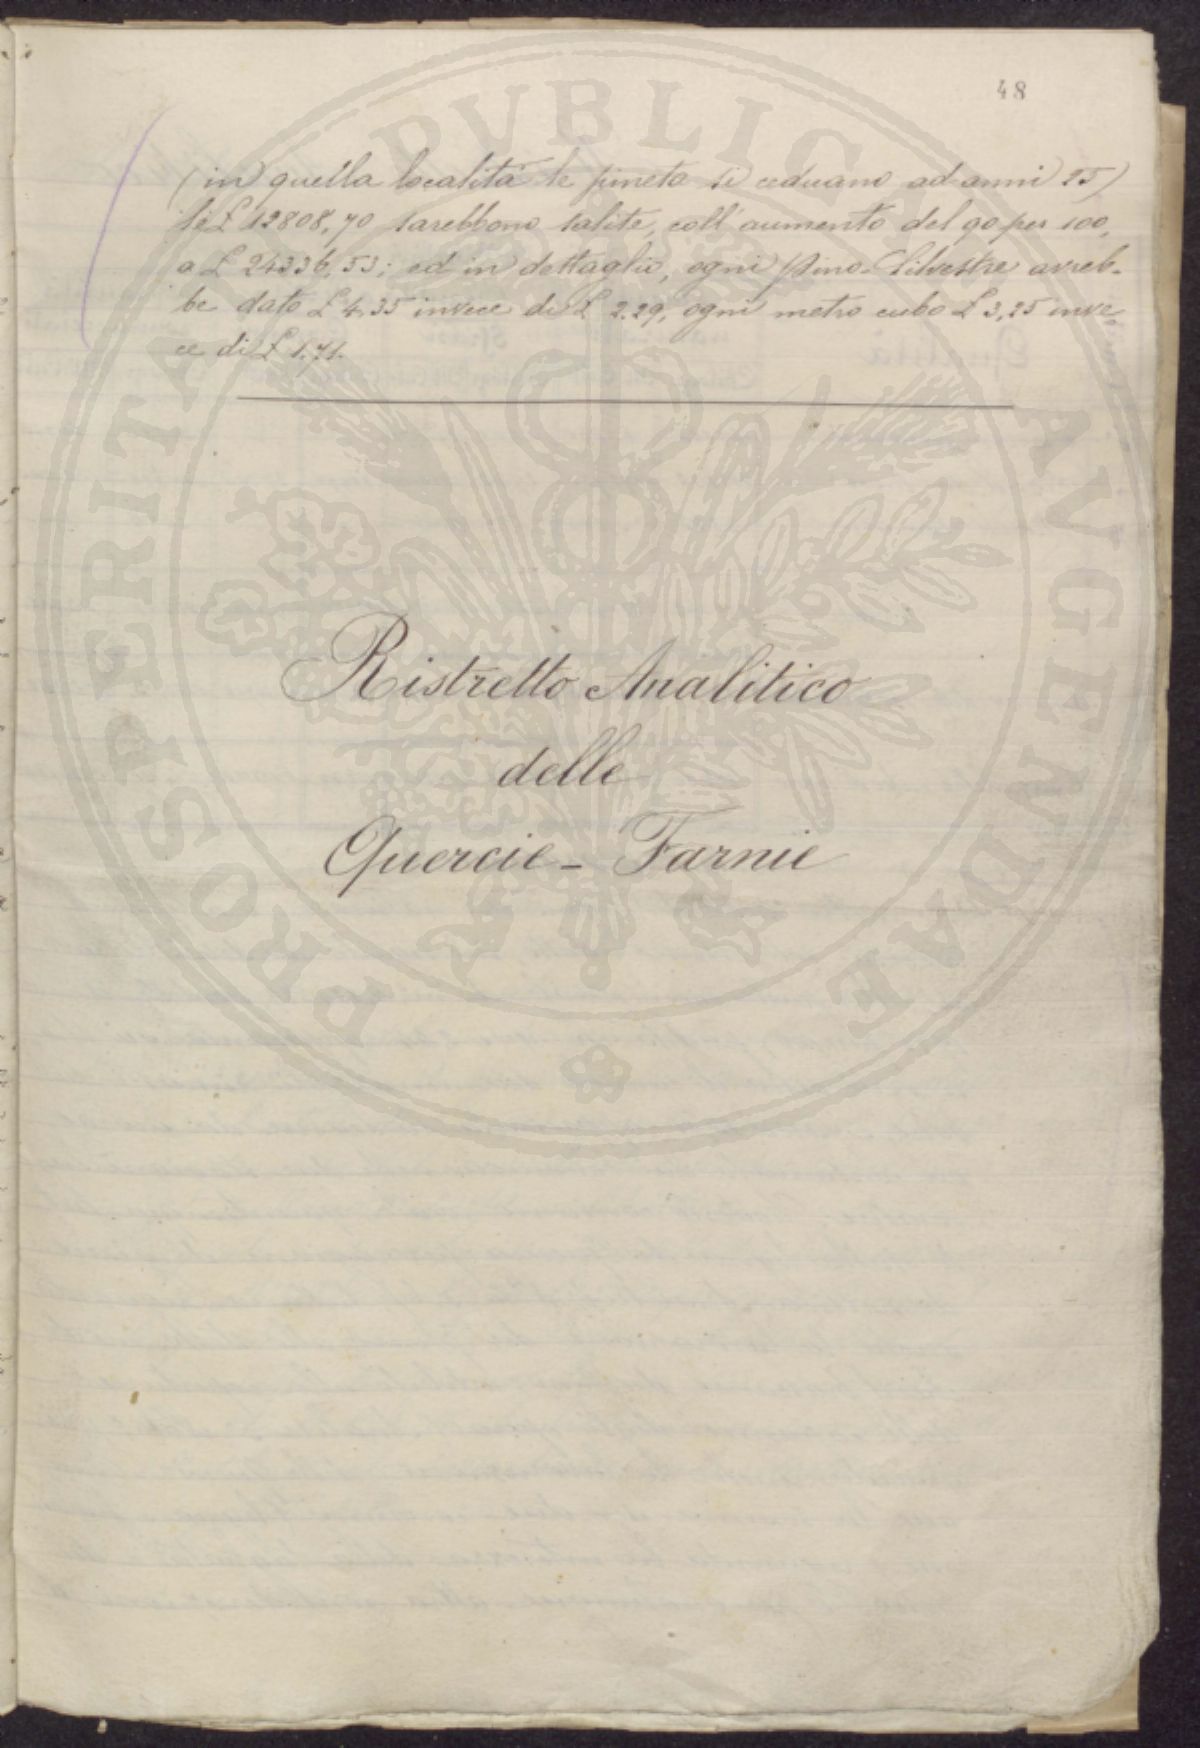 48
(in quella località le pinete si ceduano ad anni 25)
le £ 12808,70 sarebbono salite, coll'aumento del 90 per 100,
a £ 24336,53; ed in dettaglio, ogni Pino-Silvestre avreb-
be dato £ 4,35 invece di £ 2,29, ogni metro cubo £ 3,25 inve-
ce di £ 1,71.
Ristretto Analitico
delle
Quercie - Farnie
PROSPERITATI PVBLICAE AVGENDAE